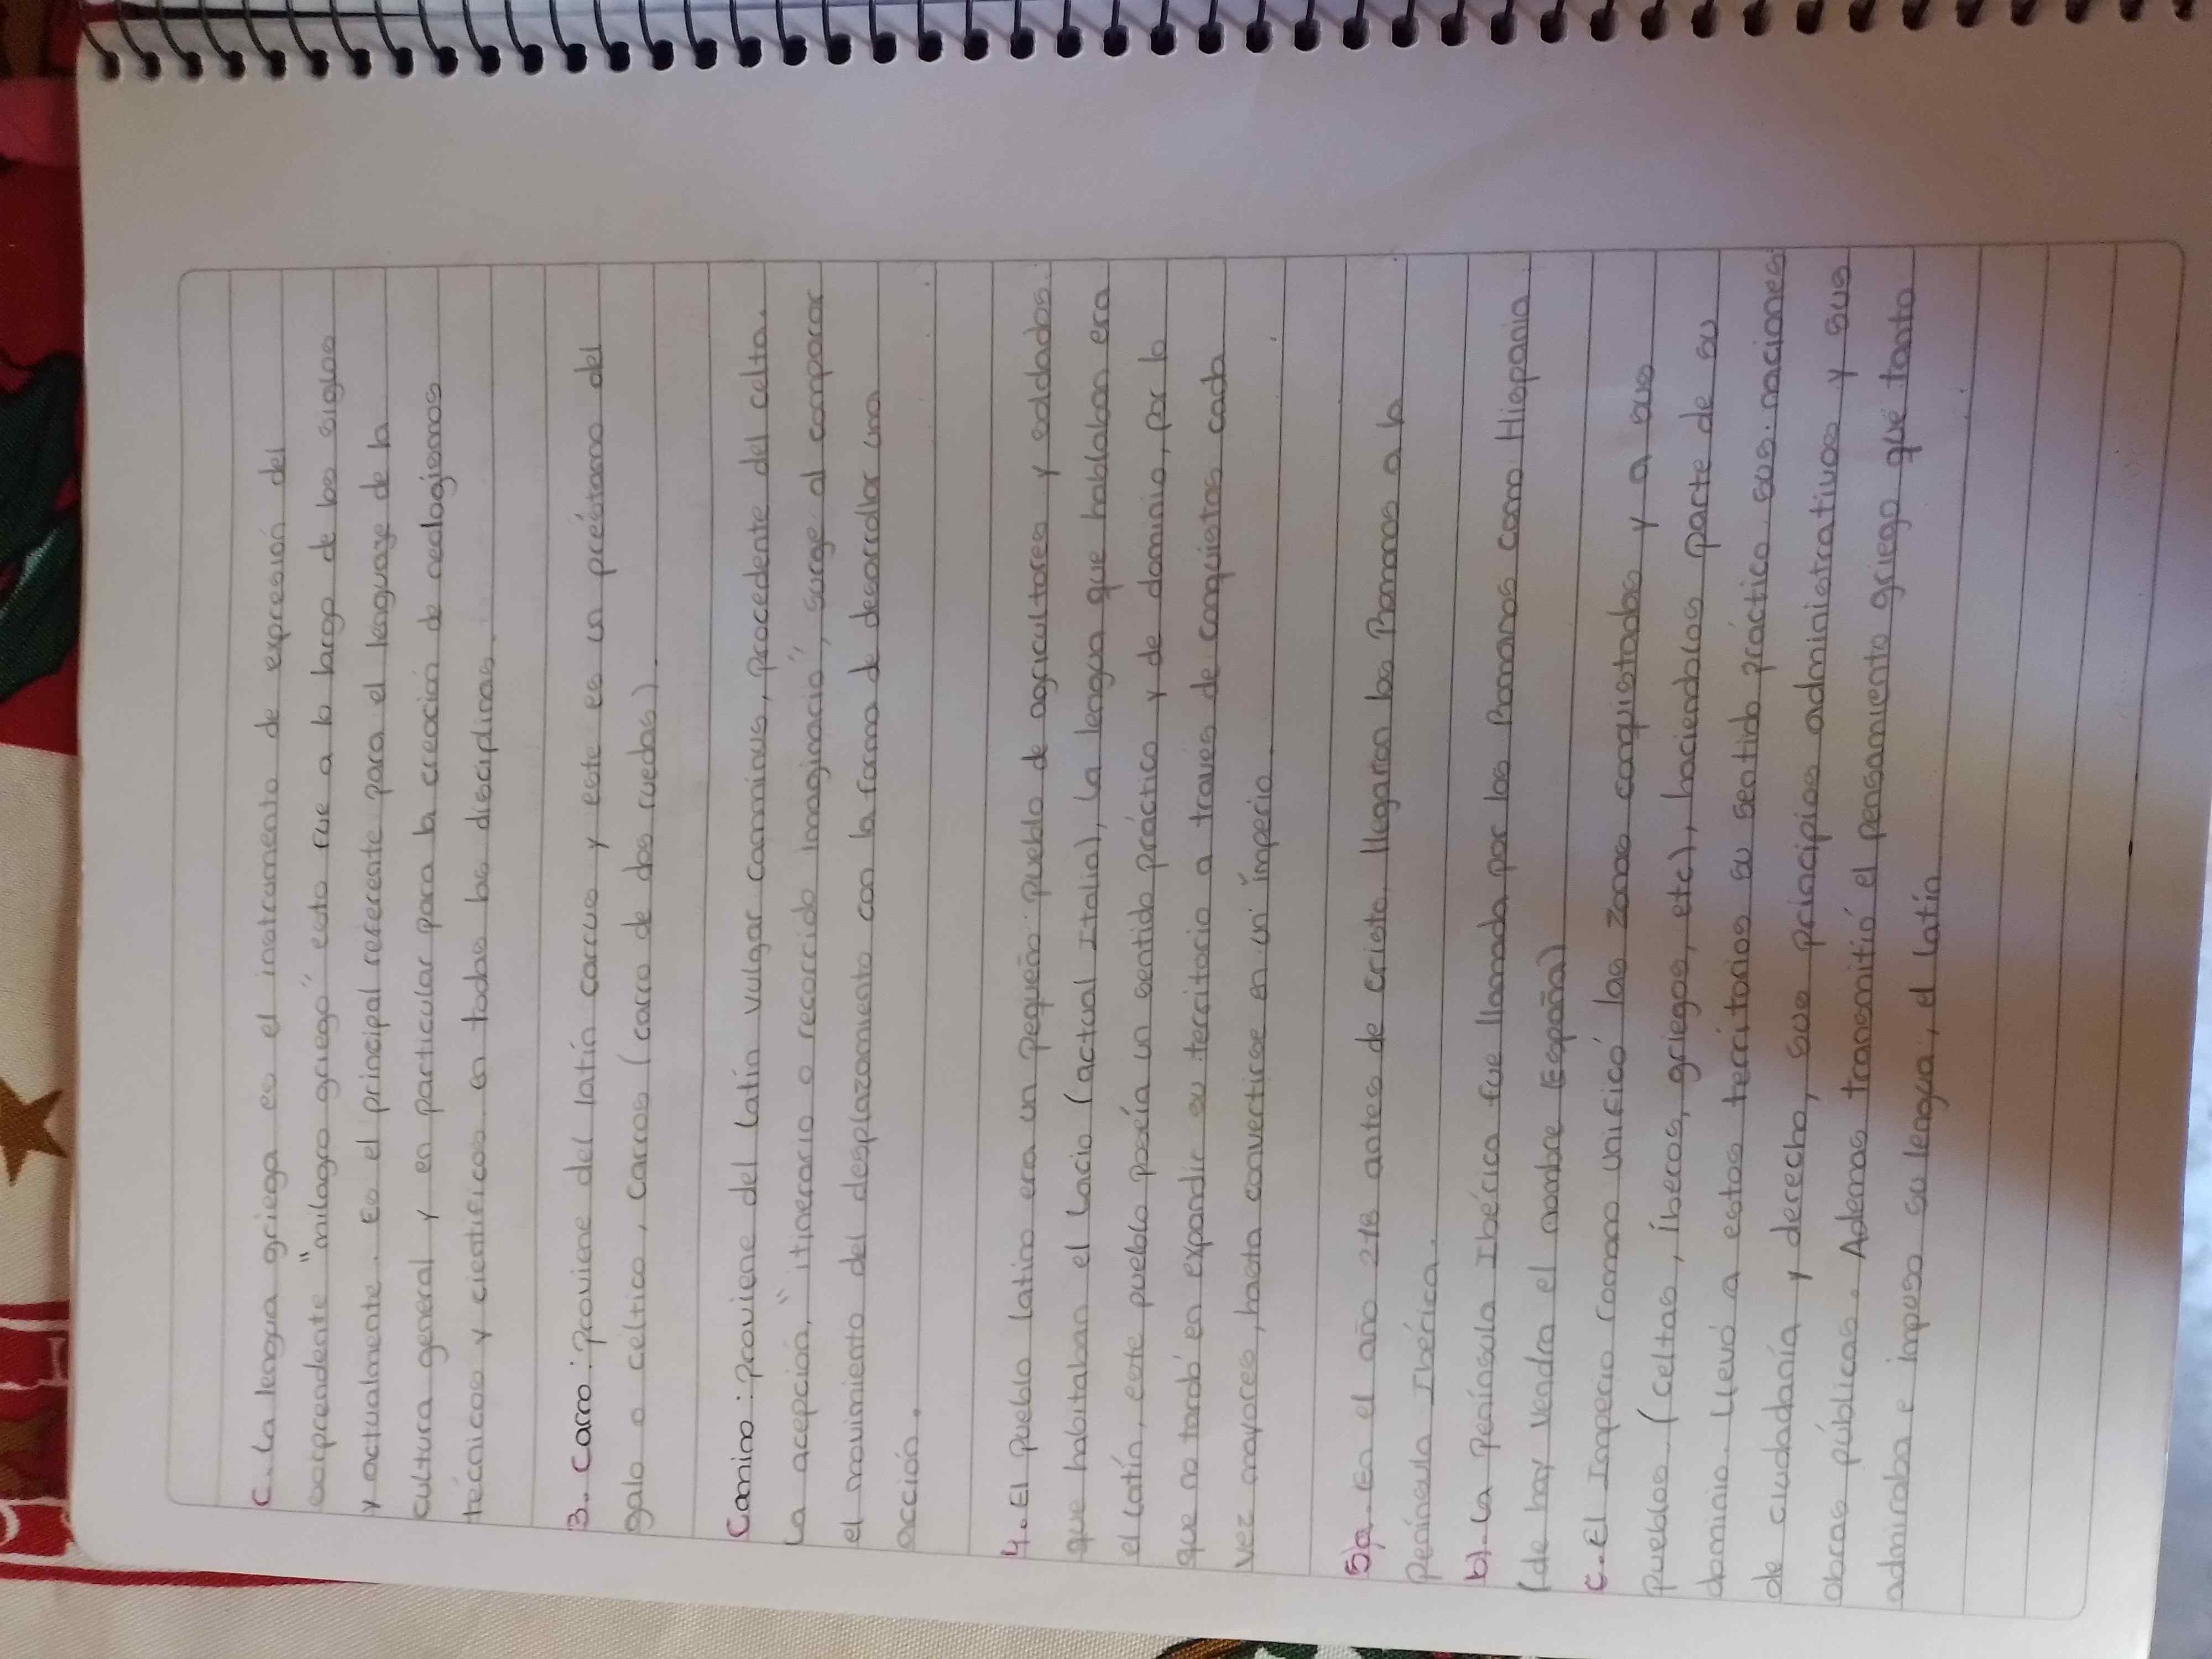 C. La lengua griega es el instrumento de expresión del
sorprendente "milagro griego" esto fue a lo largo de los siglos
y actualmente. Es el principal referente para el lenguaje de la
cultura general y en particular para la creación de neologismos
técnicos y científicos en todas las disciplinas.
3. Carro: proviene del latín carrus y este es un préstamo del
galo o celtico, carros (carro de dos ruedas).
Camino: proviene del latín vulgar camminus, procedente del celta.
La acepción, "itinerario o recorrido imaginario", surge al comparar
el movimiento del desplazamiento con la forma de desarrollar una
acción.
4. El pueblo latino era un pequeño pueblo de agricultores y soldados
que habitaban el Lacio (actual Italia), la lengua que hablaban era
el latín, este pueblo poseía un sentido práctico y de dominio, por lo
que no tardó en expandir su territorio a través de conquistas cada
vez mayores, hasta convertirse en un imperio.
5)a. En el año 218 antes de cristo, llegaron los Romanos a la
Península Ibérica.
b). La península Ibérica fue llamada por los Romanos como Hispania
(de hay vendra el nombre España)
c. El Imperio romano unificó las zonas conquistadas y a sus
pueblos (celtas, íberos, griegos, etc), haciendolos parte de su
dominio. Llevó a estos territorios su sentido práctico, sus naciones
de ciudadanía y derecho, sus principios administrativos y sus
obras públicas. Ademas transmitió el pensamiento griego que tanto
admiraba e impuso su lengua, el latín